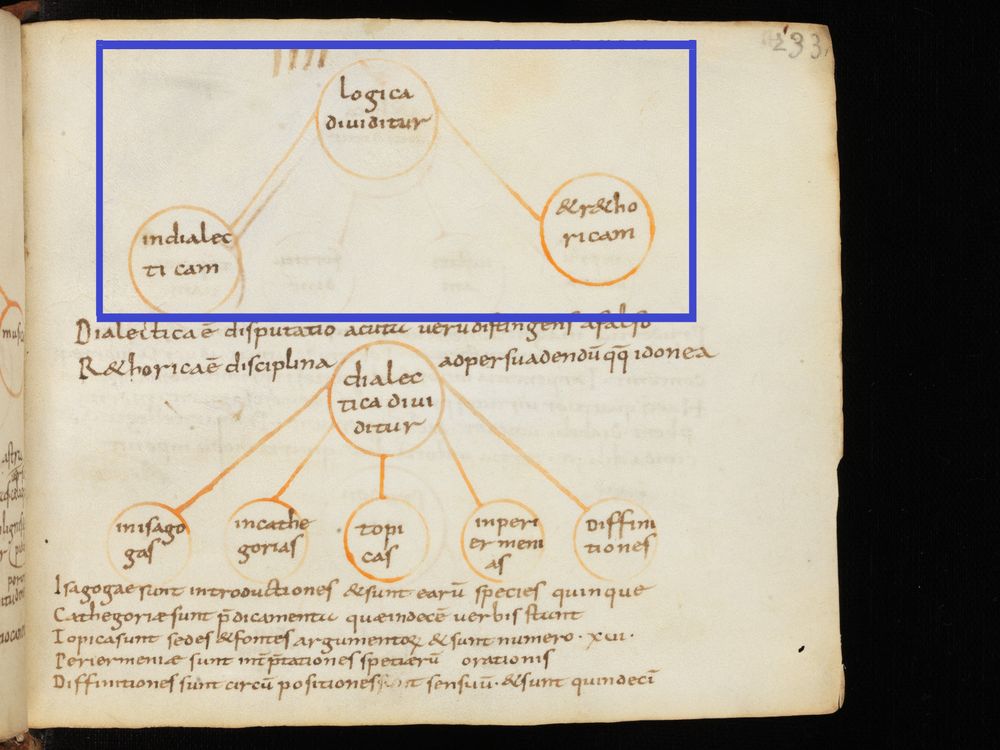 233
IIII
logica
diuiditur
&r&ho
ricam
indialec
ti cam
Dialectica ē disputatio acuta ueru distingens afalso
R&horica ē disciplina adpersuadendū qq idonea
dialec
tica diui
ditur
inisago
gas
incathe
gorias
topi
cas
inperi
ermeni
as
Diffini
tiones
Isagogae sunt introductiones &sunt earū species quinque
Cathegoriæ sunt p̄dicamenta quæ indecē uerbis stunt
Topica sunt sedes &fontes argumentoꝝ &sunt numero · xui ·
Periermeniæ sunt int̄p̄tationes specierū orationis
Diffinitiones sunt circū positiones sensuū · &sunt quindecī